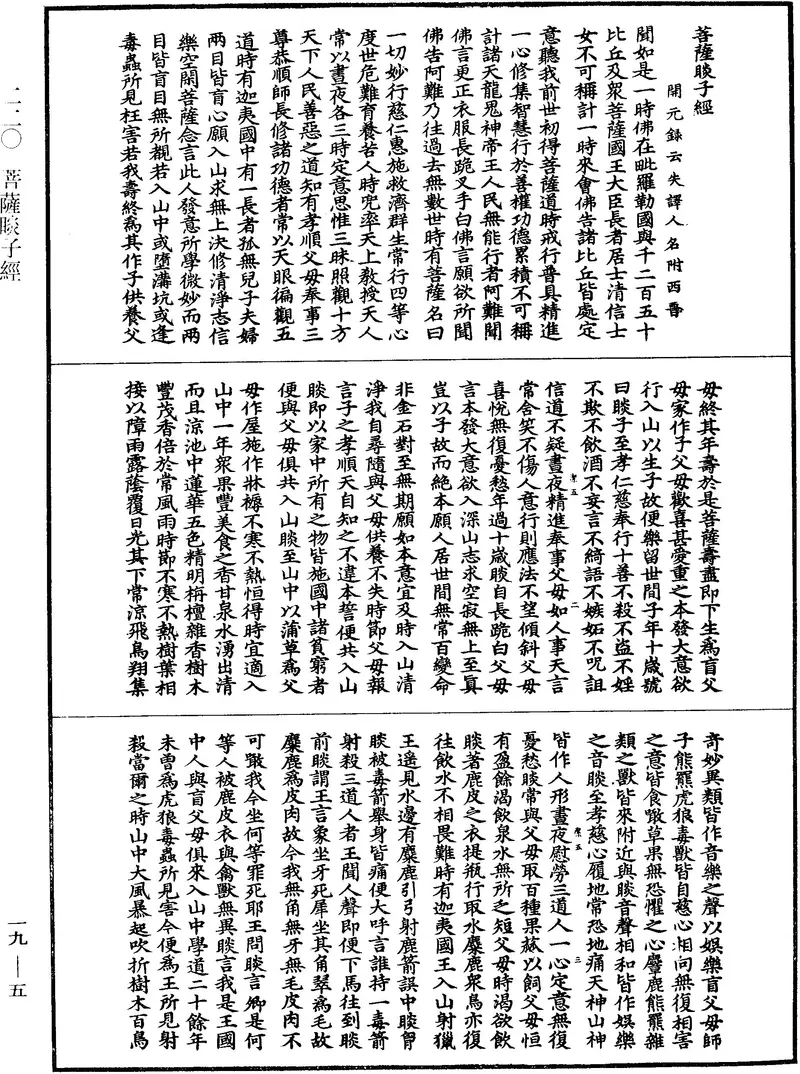 菩薩睒子經
開元錄云失譯人名附西晉
聞如是一時佛在毗羅勒國與千二百五十
比丘及衆菩薩國王大臣長者居士清信士
女不可稱計一時來會佛告諸比丘皆處定
意聽我前世初得菩薩道時戒行普具精進
一心修集智慧行於善權功德累積不可稱
計諸天龍鬼神帝王人民無能行者阿難聞
佛言更正衣服長跪叉手白佛言願欲所聞
佛告阿難乃往過去無數世時有菩薩名曰
一切妙行慈仁惠施救濟群生常行四等心
度世危難育養苦人時兜率天上教授天人
常以晝夜各三時定意思惟三昧照觀十方
天下人民善惡之道知有孝順父母奉事三
尊恭順師長修諸功德者常以天眼徧觀五
道時有迦夷國中有一長者孤無兒子夫婦
兩目皆盲心願入山求無上決修清淨志信
樂空閑菩薩念言此人發意所學微妙而兩
目皆盲目無所覩若入山中或墮溝坑或逢
毒蟲所見枉害若我壽終爲其作子供養父
母終其年壽於是菩薩壽盡即下生爲盲父
母家作子父母歡喜甚愛重之本發大意欲
行入山以生子故便樂留世間子年十歲號
曰睒子至孝仁慈奉行十善不殺不盜不婬
不欺不飲酒不妄言不綺語不嫉妬不呪詛
信道不疑晝夜精進奉事父母如人事天言
常含笑不傷人意行則應法不望傾斜父母
喜悅無復憂愁年過十歲睒自長跪白父母
言本發大意欲入深山志求空寂無上至真
豈以子故而絕本願人居世間無常百變命
非金石對至無期願如本意宜及時入山清
淨我自尋隨與父母供養不失時節父母報
言子之孝順天自知之不違本誓便共入山
睒即以家中所有之物皆施國中諸貧窮者
便與父母俱共入山睒至山中以蒲草爲父
母作屋施作牀褥不寒不熱恒得時宜適入
山中一年衆果豐美食之香甘泉水湧出清
而且涼池中蓮華五色精明栴檀雜香樹木
豐茂香倍於常風雨時節不寒不熱樹葉相
接以障雨露蔭覆日光其下常涼飛鳥翔集
奇妙異類皆作音樂之聲以娛樂盲父母師
子熊羆虎狼毒獸皆自慈心相向無復相害
之意皆食噉草果無恐懼之心麞鹿熊羆雜
類之獸皆來附近與睒音聲相和皆作娛樂
之音睒至孝慈心履地常恐地痛天神山神
皆作人形晝夜慰勞三道人一心定意無復
憂愁睒常與父母取百種果蓏以飼父母恒
有盈餘渴飲泉水無所乏短父母時渴欲飲
睒著鹿皮之衣提瓶行取水麋鹿衆鳥亦復
往飲水不相畏難時有迦夷國王入山射獵
王遙見水邊有麋鹿引弓射鹿箭誤中睒胷
睒被毒箭舉身皆痛便大呼言誰持一毒箭
射殺三道人者王聞人聲即便下馬往到睒
前睒謂王言象坐牙死犀坐其角翠爲毛故
麋鹿爲皮肉故今我無角無牙無毛皮肉不
可噉我今坐何等罪死耶王問睒言卿是何
等人被鹿皮衣與禽獸無異睒言我是王國
中人與盲父母俱來入山中學道二十餘年
未曾爲虎狼毒蟲所見害今便爲王所見射
殺當爾之時山中大風暴起吹折樹木百鳥
二二〇 菩薩睒子經
一九—五